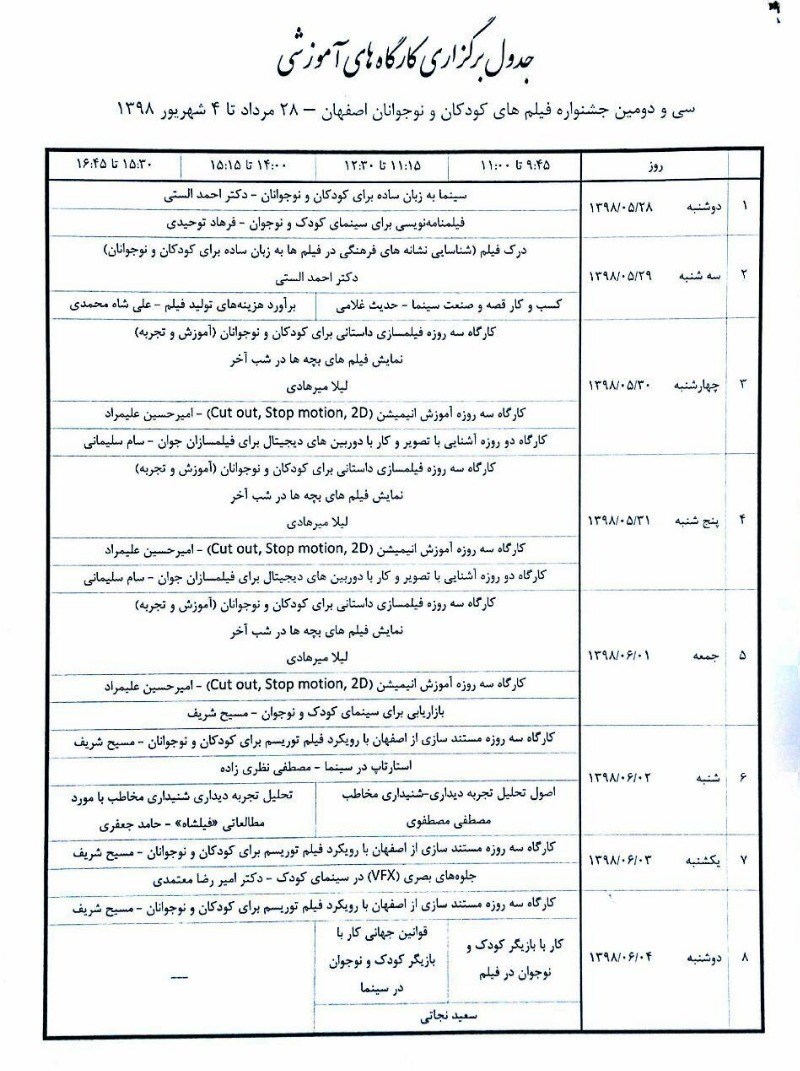 جدول برگزاری کارگاه های آموزشی
سی و دومین جشنواره فیلم های کودکان و نوجوانان اصفهان – ۲۸ مرداد تا ۴ شهریور ۱۳۹۸
روز ۹:۴۵ تا ۱۱:۰۰ ۱۱:۱۵ تا ۱۲:۳۰ ۱۴:۰۰ تا ۱۵:۱۵ ۱۵:۳۰ تا ۱۶:۴۵
۱ دوشنبه ۱۳۹۸/۰۵/۲۸
سینما به زبان ساده برای کودکان و نوجوانان – دکتر احمد الستی
فیلمنامه‌نویسی برای سینمای کودک و نوجوان – فرهاد توحیدی
۲ سه شنبه ۱۳۹۸/۰۵/۲۹
درک فیلم (شناسایی نشانه های فرهنگی در فیلم ها به زبان ساده برای کودکان و نوجوانان)
دکتر احمد الستی
کسب و کار قصه و صنعت سینما – حدیث غلامی
برآورد هزینه‌های تولید فیلم – علی شاه محمدی
۳ چهارشنبه ۱۳۹۸/۰۵/۳۰
کارگاه سه روزه فیلمسازی داستانی برای کودکان و نوجوانان (آموزش و تجربه)
نمایش فیلم های بچه ها در شب آخر
لیلا میرهادی
کارگاه سه روزه آموزش انیمیشن (Cut out, Stop motion, 2D) – امیرحسین علیمراد
کارگاه دو روزه آشنایی با تصویر و کار با دوربین های دیجیتال برای فیلمسازان جوان – سام سلیمانی
۴ پنج شنبه ۱۳۹۸/۰۵/۳۱
کارگاه سه روزه فیلمسازی داستانی برای کودکان و نوجوانان (آموزش و تجربه)
نمایش فیلم های بچه ها در شب آخر
لیلا میرهادی
کارگاه سه روزه آموزش انیمیشن (Cut out, Stop motion, 2D) – امیرحسین علیمراد
کارگاه دو روزه آشنایی با تصویر و کار با دوربین های دیجیتال برای فیلمسازان جوان – سام سلیمانی
۵ جمعه ۱۳۹۸/۰۶/۰۱
کارگاه سه روزه فیلمسازی داستانی برای کودکان و نوجوانان (آموزش و تجربه)
نمایش فیلم های بچه ها در شب آخر
لیلا میرهادی
کارگاه سه روزه آموزش انیمیشن (Cut out, Stop motion, 2D) – امیرحسین علیمراد
بازاریابی برای سینمای کودک و نوجوان – مسیح شریف
۶ شنبه ۱۳۹۸/۰۶/۰۲
کارگاه سه روزه مستند سازی از اصفهان با رویکرد فیلم توریسم برای کودکان و نوجوانان – مسیح شریف
استارتاپ در سینما – مصطفی نظری زاده
اصول تحلیل تجربه دیداری–شنیداری مخاطب
مصطفی مصطفوی
تحلیل تجربه دیداری شنیداری مخاطب با مورد
مطالعاتی «فیلشاه» – حامد جعفری
۷ یکشنبه ۱۳۹۸/۰۶/۰۳
کارگاه سه روزه مستند سازی از اصفهان با رویکرد فیلم توریسم برای کودکان و نوجوانان – مسیح شریف
جلوه‌های بصری (VFX) در سینمای کودک – دکتر امیر رضا معتمدی
۸ دوشنبه ۱۳۹۸/۰۶/۰۴
کارگاه سه روزه مستند سازی از اصفهان با رویکرد فیلم توریسم برای کودکان و نوجوانان – مسیح شریف
کار با بازیگر کودک و
نوجوان در فیلم
قوانین جهانی کار با
بازیگر کودک و نوجوان
در سینما
—
سعید نجاتی